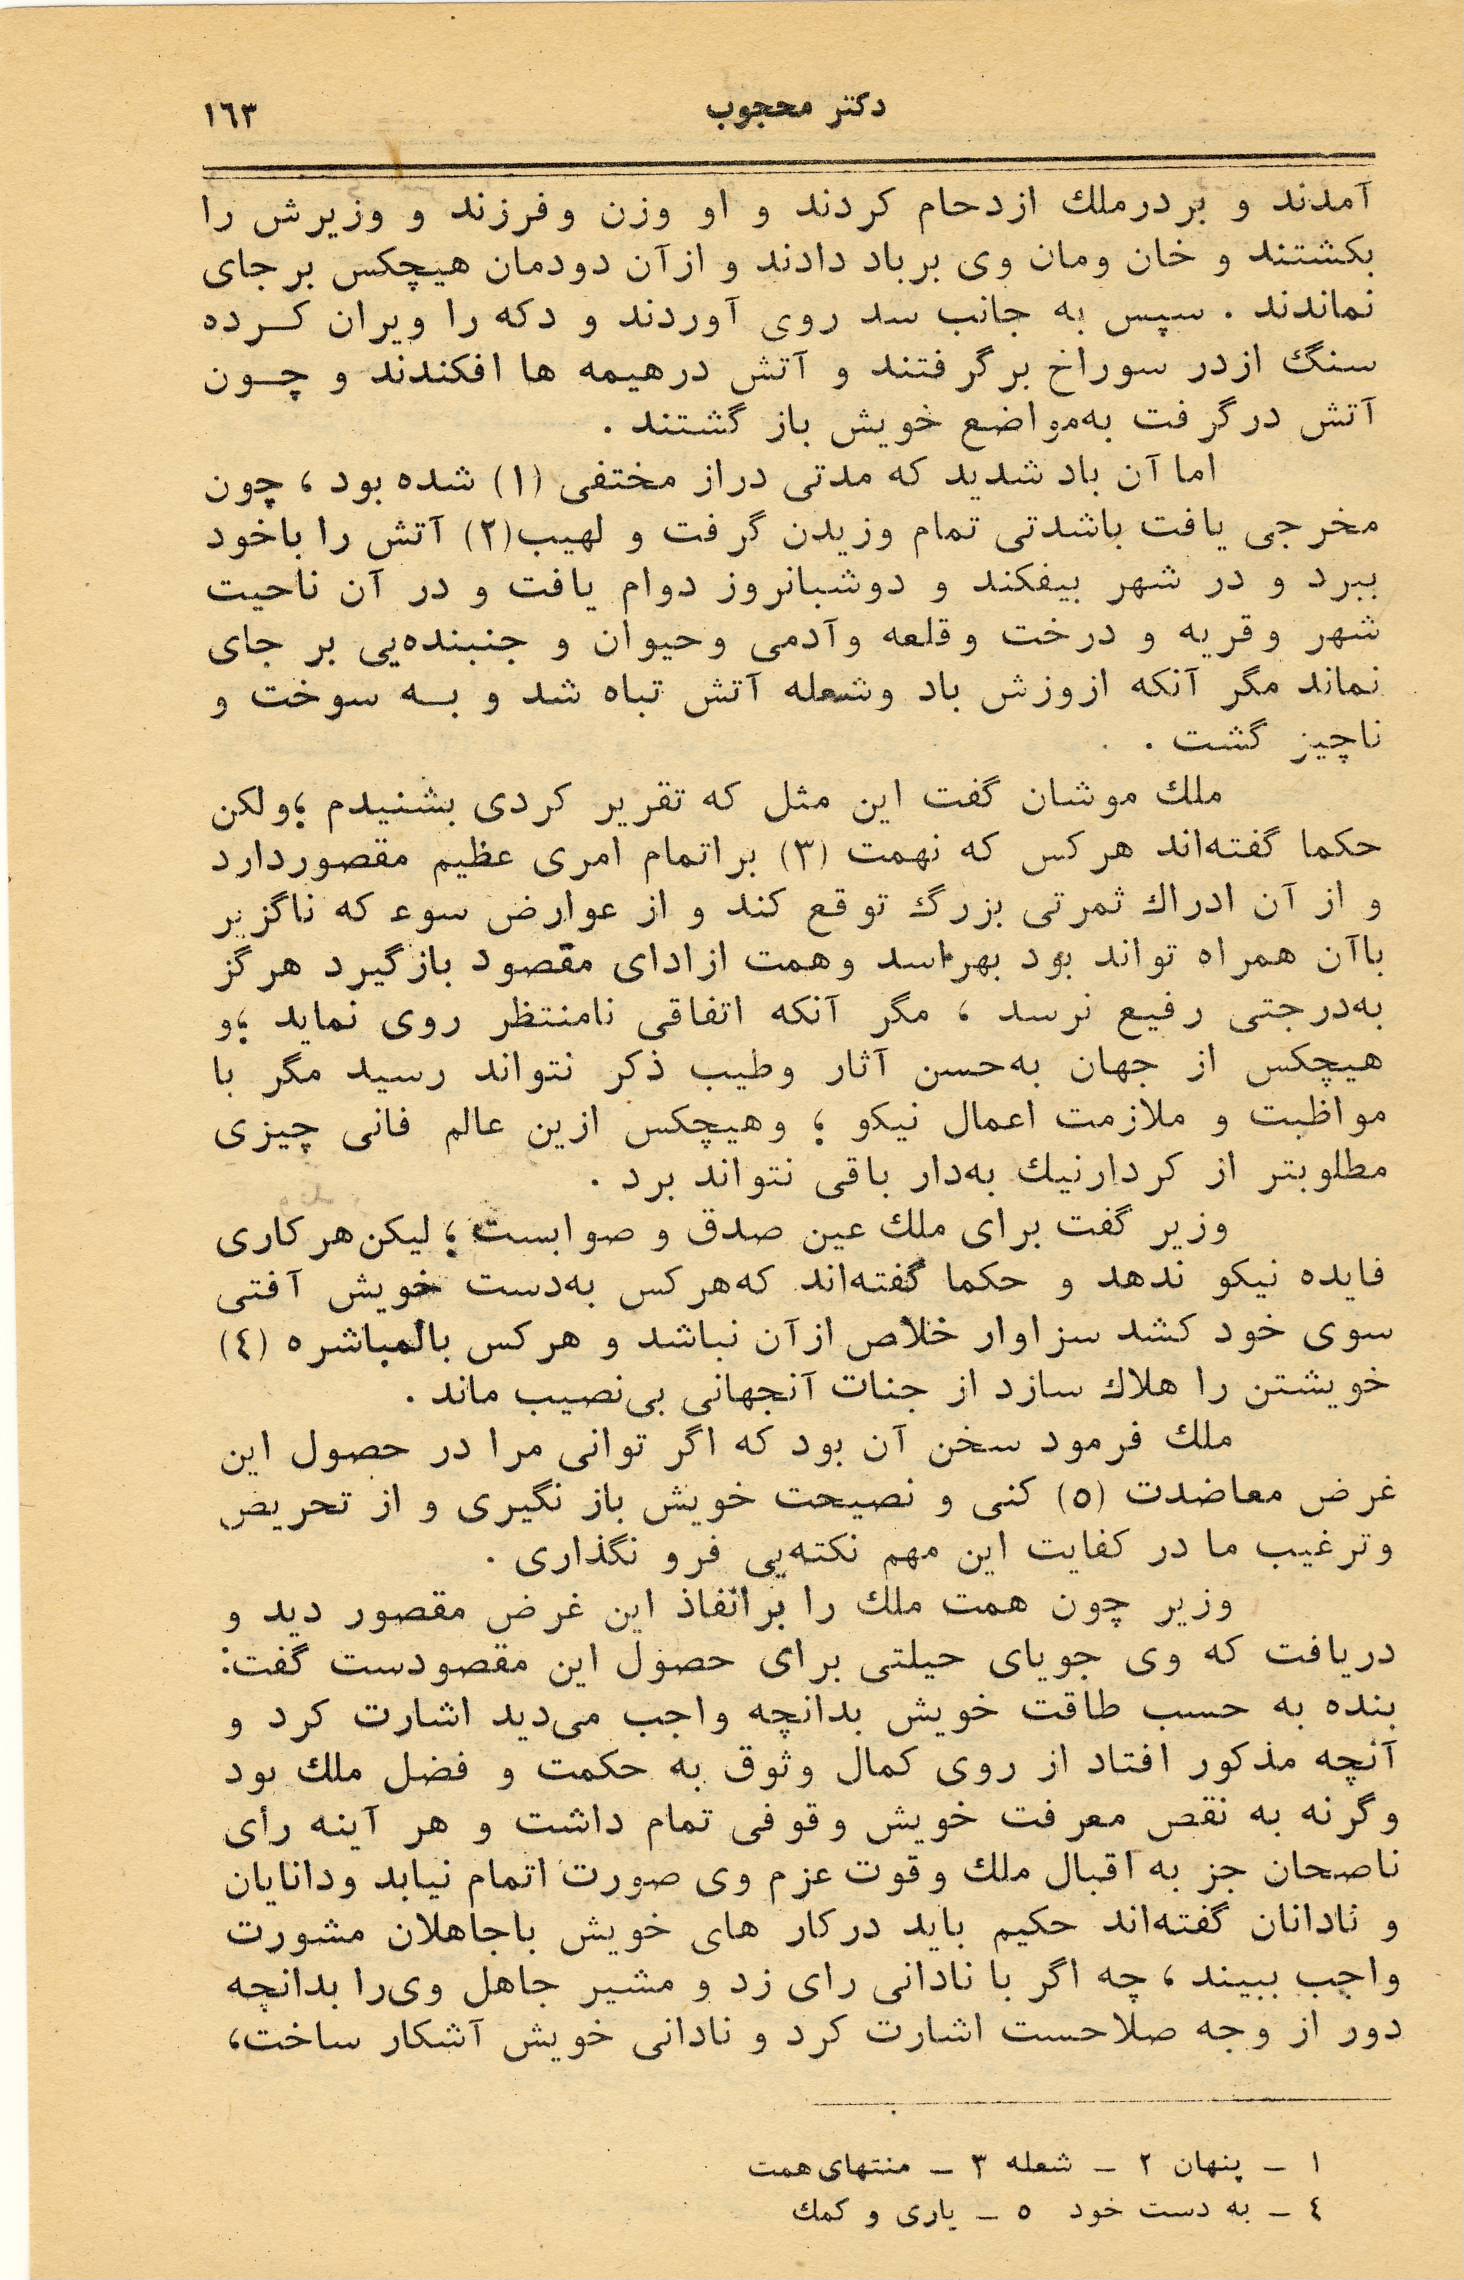 دکتر محجوب
١٦٣
آمدند و بردرملك ازدحام کردند و او وزن وفرزند و وزیرش را
بکشتند و خان ومان وی برباد دادند و ازآن دودمان هیچکس برجای
نماندند . سپس به جانب سد روی آوردند و دکه را ویران کـرده
سنگ ازدر سوراخ برگرفتند و آتش درهیمه ها افکندند و چـون
آتش درگرفت به‌مواضع خویش باز گشتند .
اما آن باد شدید که مدتی دراز مختفی (١) شده بود ، چون
مخرجی یافت باشدتی تمام وزیدن گرفت و لهیب(٢) آتش را باخود
ببرد و در شهر بیفکند و دوشبانروز دوام یافت و در آن ناحیت
شهر وقریه و درخت وقلعه وآدمی وحیوان و جنبنده‌یی بر جای
نماند مگر آنکه ازوزش باد وشعله آتش تباه شد و بـه سوخت و
ناچیز گشت .
ملك موشان گفت این مثل که تقریر کردی بشنیدم ؛ولکن
حکما گفته‌اند هرکس که نهمت (٣) براتمام امری عظیم مقصوردارد
و از آن ادراك ثمرتی بزرگ توقع کند و از عوارض سوء که ناگزیر
باآن همراه تواند بود بهراسد وهمت ازادای مقصود بازگیرد هرگز
به‌درجتی رفیع نرسد ، مگر آنکه اتفاقی نامنتظر روی نماید ؛و
هیچکس از جهان به‌حسن آثار وطیب ذکر نتواند رسید مگر با
مواظبت و ملازمت اعمال نیکو ؛ وهیچکس ازین عالم فانی چیزی
مطلوبتر از کردارنیك به‌دار باقی نتواند برد .
وزیر گفت برای ملك عین صدق و صوابست ؛ لیکن‌هرکاری
فایده نیکو ندهد و حکما گفته‌اند که‌هرکس به‌دست خویش آفتی
سوی خود کشد سزاوار خلاص ازآن نباشد و هرکس بالمباشره (٤)
خویشتن را هلاك سازد از جنات آنجهانی بی‌نصیب ماند .
ملك فرمود سخن آن بود که اگر توانی مرا در حصول این
غرض معاضدت (٥) کنی و نصیحت خویش باز نگیری و از تحریض
وترغیب ما در کفایت این مهم نکته‌یی فرو نگذاری .
وزیر چون همت ملك را برانفاذ این غرض مقصور دید و
دریافت که وی جویای حیلتی برای حصول این مقصودست گفت:
بنده به حسب طاقت خویش بدانچه واجب می‌دید اشارت کرد و
آنچه مذکور افتاد از روی کمال وثوق به حکمت و فضل ملك بود
وگرنه به نقص معرفت خویش وقوفی تمام داشت و هر آینه رأی
ناصحان جز به اقبال ملك وقوت عزم وی صورت اتمام نیابد ودانایان
و نادانان گفته‌اند حکیم باید درکار های خویش باجاهلان مشورت
واجب ببیند ، چه اگر با نادانی رای زد و مشیر جاهل وی‌را بدانچه
دور از وجه صلاحست اشارت کرد و نادانی خویش آشکار ساخت،
١ ـ پنهان ٢ ـ شعله ٣ ـ منتهای‌همت
٤ ـ به دست خود ٥ ـ یاری و کمك